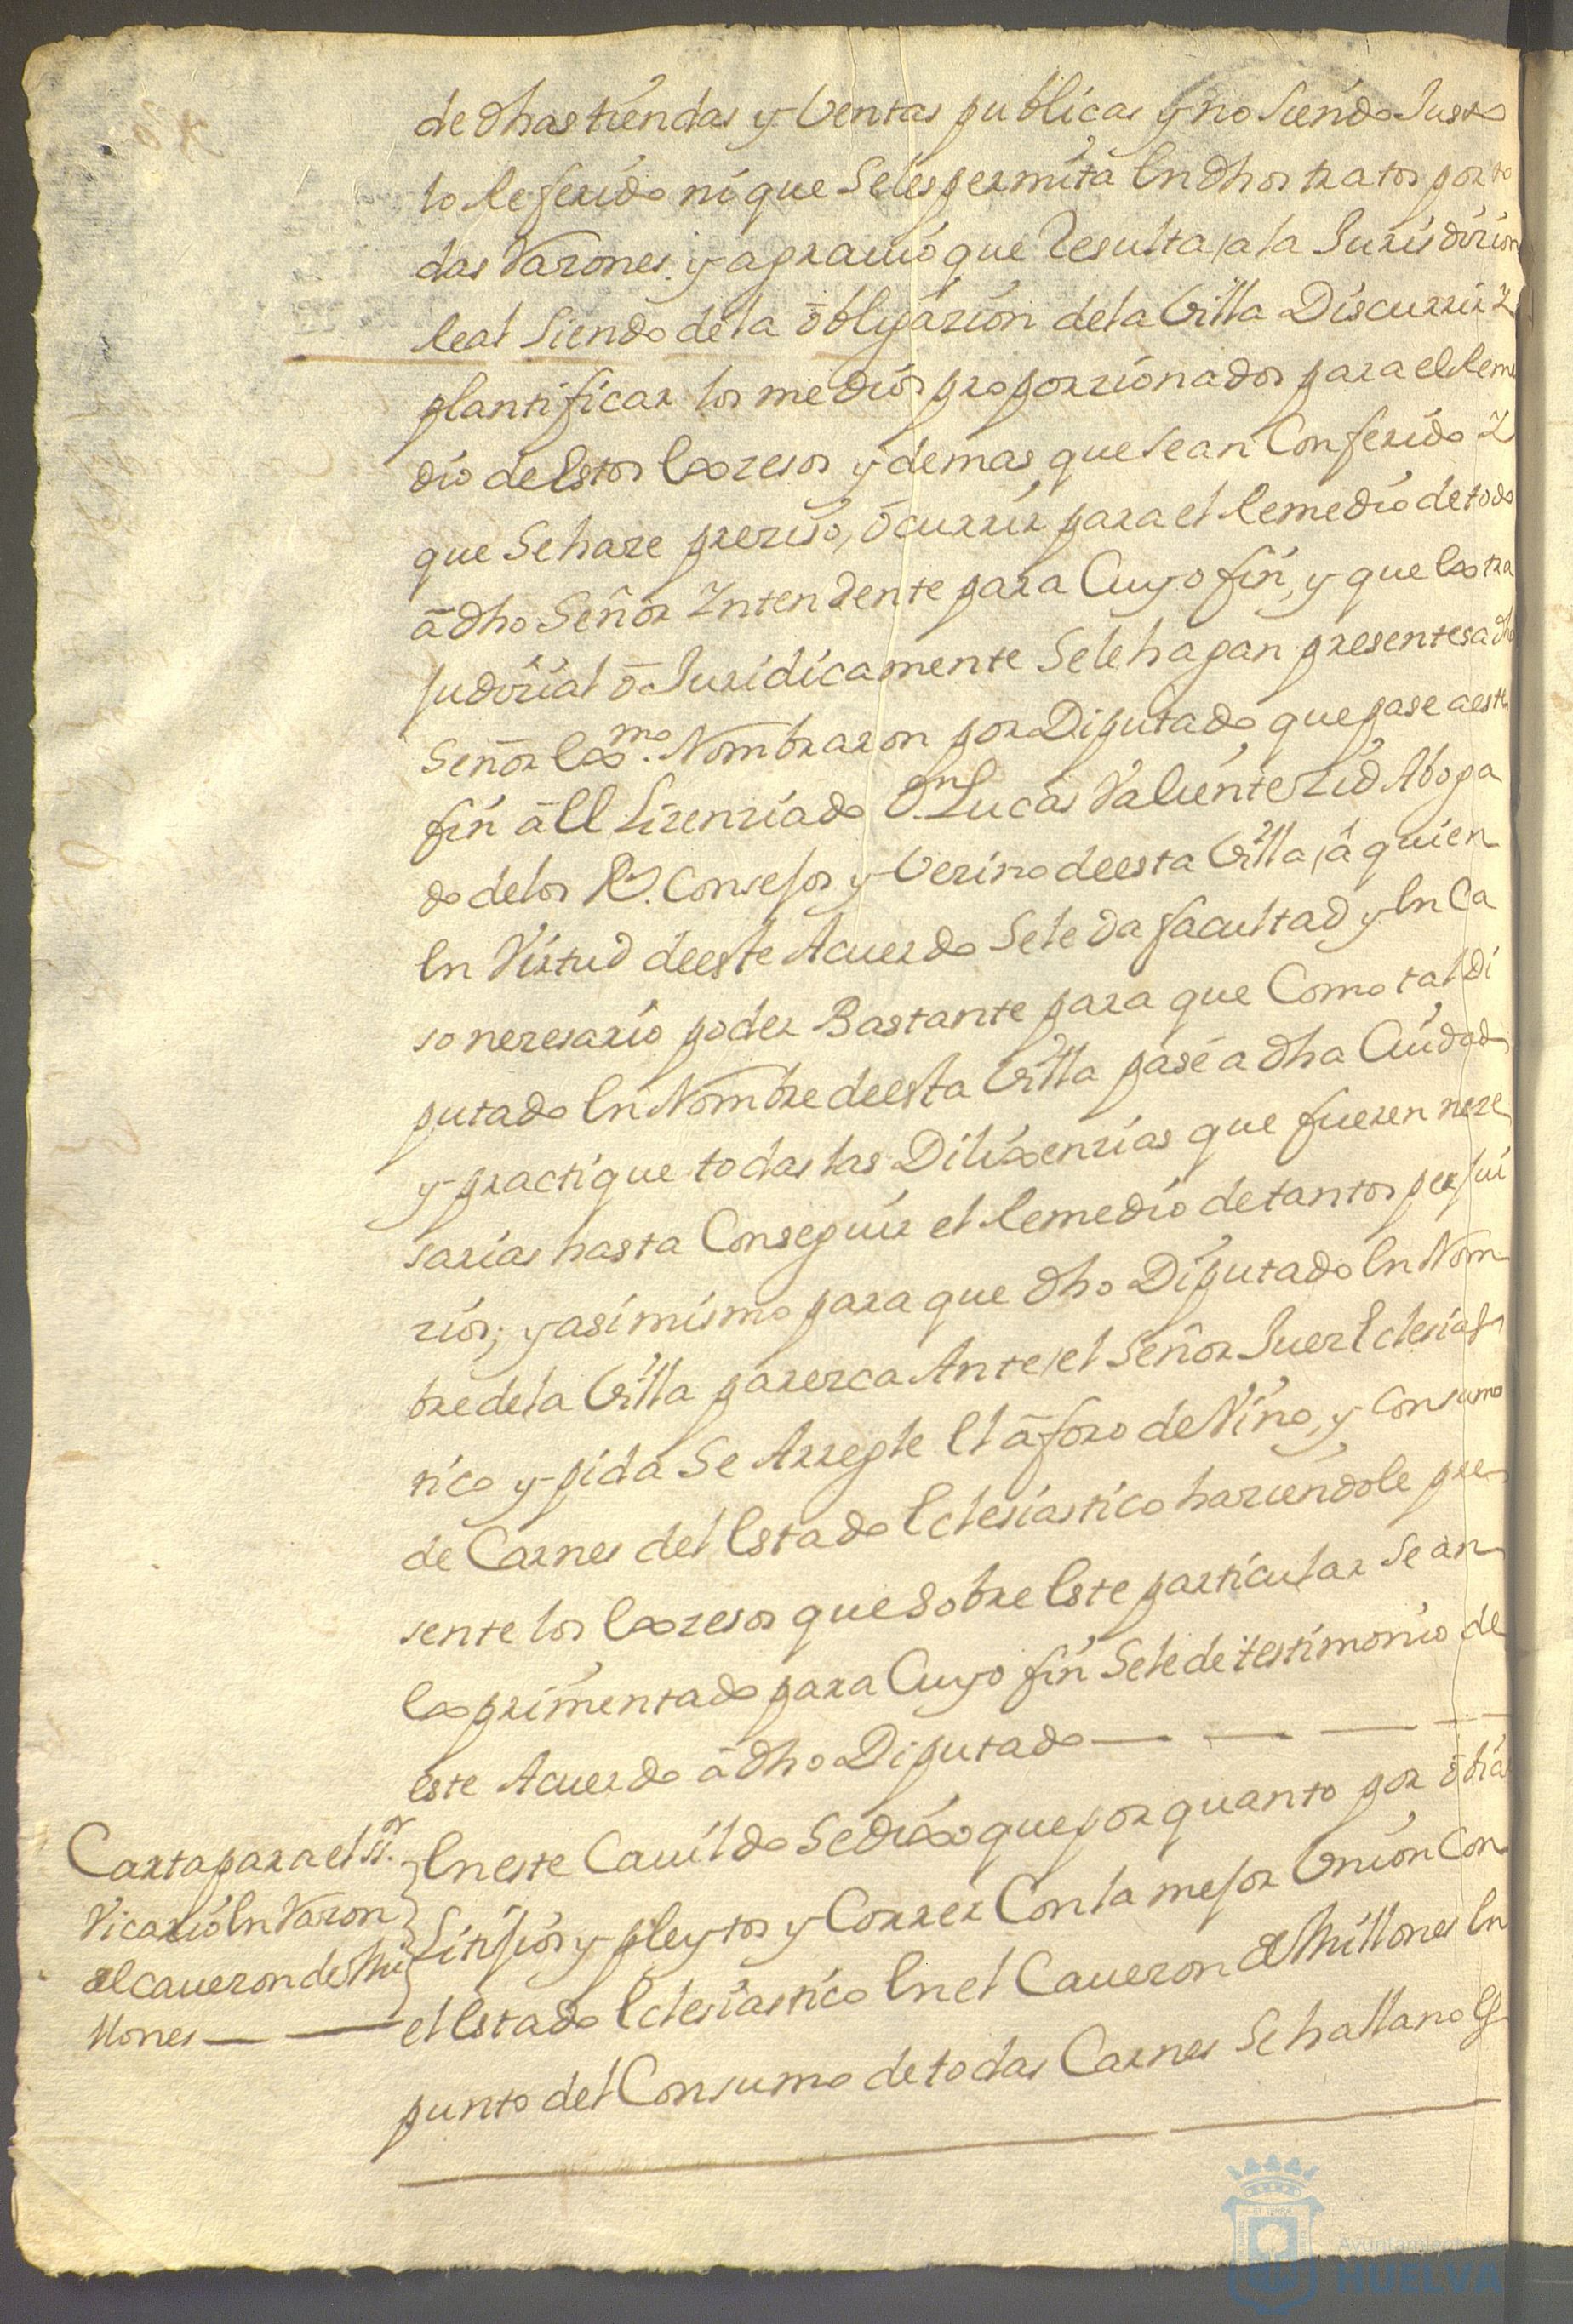 de dhas tiendas y Ventas publicas y no siendo Justo
lo Referido ni que Se les permita En dhos tratos por to
das Razones y agravio que Resulta a la Jurisdizion
Real Siendo de la obligazion de la Villa Discurrir Y
plantificar los medios proporzionados para el Reme
dio de Estos Exzesos y demas que sean Conferido Y
que Se haze preziso, ocurrir para el Remedio de todo
a dho Señor Yntendente para Cuyo fin, y que Extra
judizial o Juridicamente Se le hagan presentes a dho
Señor Exmo. Nombraron por Diputado que pase a este
fin a El Lizenziado Dn. Lucas Valiente Zid Aboga
do de los Rs. Consejos y Vezino de esta Villa, a quien
En Virtud de este Acuerdo Se le da facultad y En Ca
so nezesario poder Bastante para que Como tal Di
putado En Nombre de esta Villa pase a dha Ciudad
y practique todas las Dilixenzias que fueren neze
sarias hasta Conseguir el Remedio de tantos perjui
zios; y asi mismo para que dho Diputado En Nom
bre de la Villa parezca Ante el Señor Juez Eclesias
tico y pida Se Arregle El aforo de Vino, y Consumo
de Carnes del Estado Eclesiastico haziendole pre
sente los Exzesos que Sobre Este particular Se an
Exprimentado para Cuyo fin Se le de testimonio de
este Acuerdo a dho Diputado
Carta para el Sr.
Vicario En Razon
al cavezon de Mi
llones
En este Cavildo Se dixo que por quanto por obiar
Litijios y pleytos y Correr Con la mejor Union Con
el Estado Eclesiastico En el Cavezon de Millones En
punto del Consumo de todas Carnes Se hallano Es
Ayuntamiento de
HUELVA